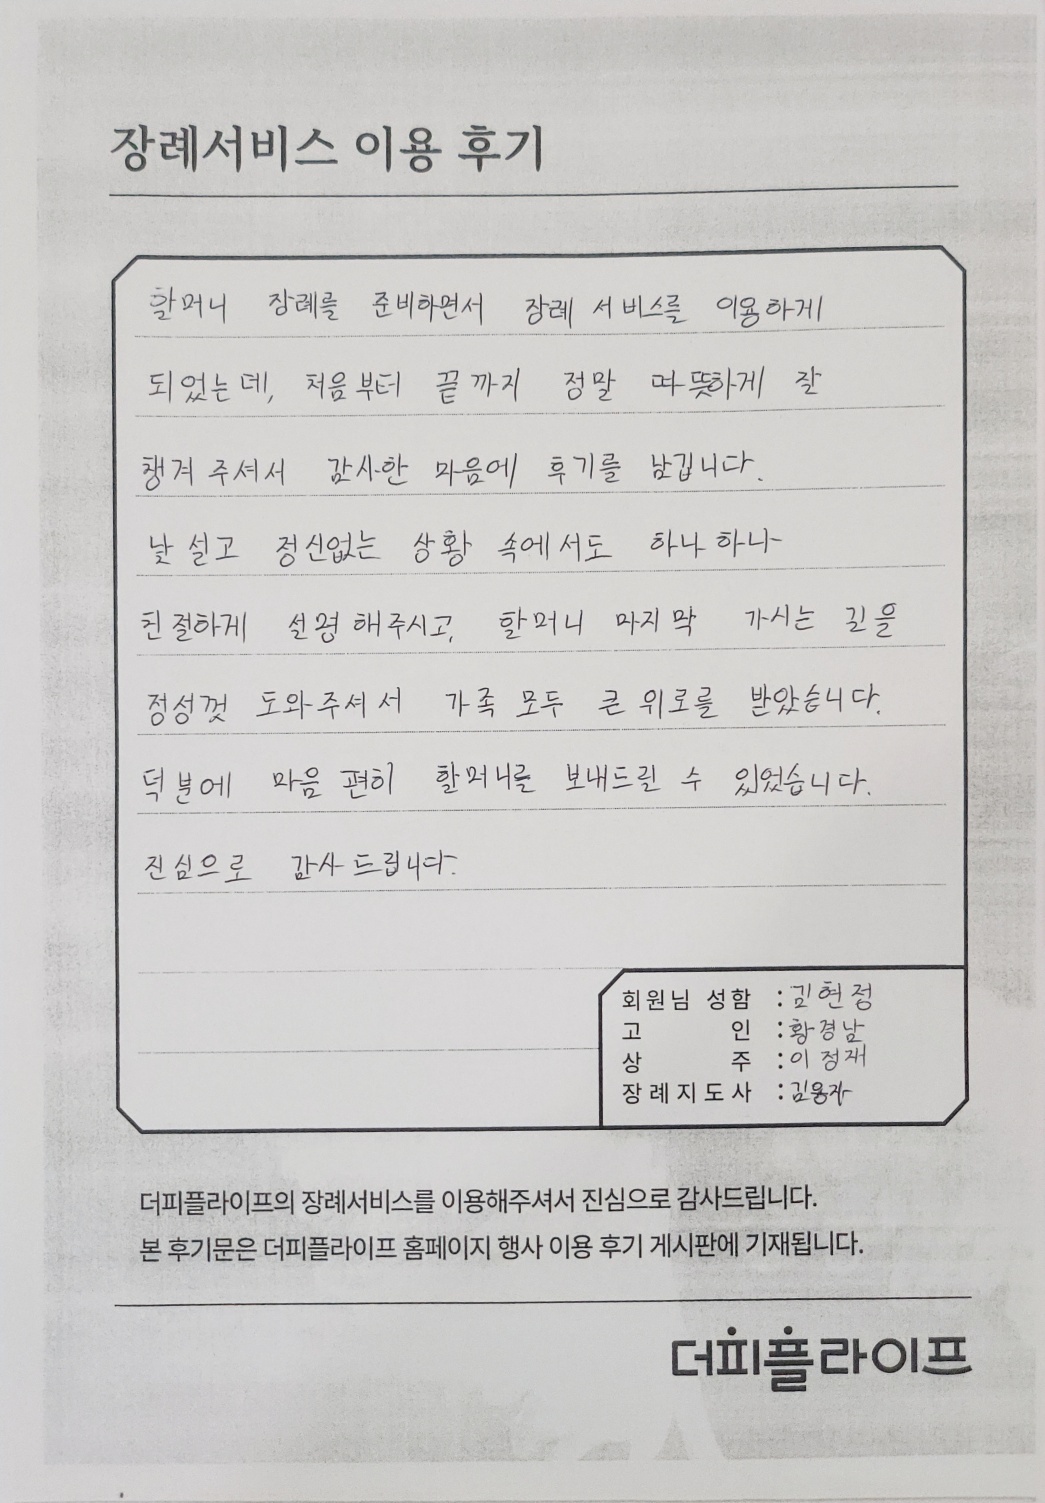 장례서비스 이용 후기
할머니 장례를 준비하면서 장례 서비스를 이용하게
되었는데, 처음부터 끝까지 정말 따뜻하게 잘
챙겨 주셔서 감사한 마음에 후기를 남깁니다.
낯설고 정신없는 상황 속에서도 하나하나
친절하게 설명해주시고, 할머니 마지막 가시는 길을
정성껏 도와주셔서 가족 모두 큰 위로를 받았습니다.
덕분에 마음 편히 할머니를 보내드릴 수 있었습니다.
진심으로 감사드립니다.
회원님 성함 : 김현정
고 인 : 황경남
상 주 : 이정재
장례지도사 : 김용자
더피플라이프의 장례서비스를 이용해주셔서 진심으로 감사드립니다.
본 후기문은 더피플라이프 홈페이지 행사 이용 후기 게시판에 기재됩니다.
더피플라이프